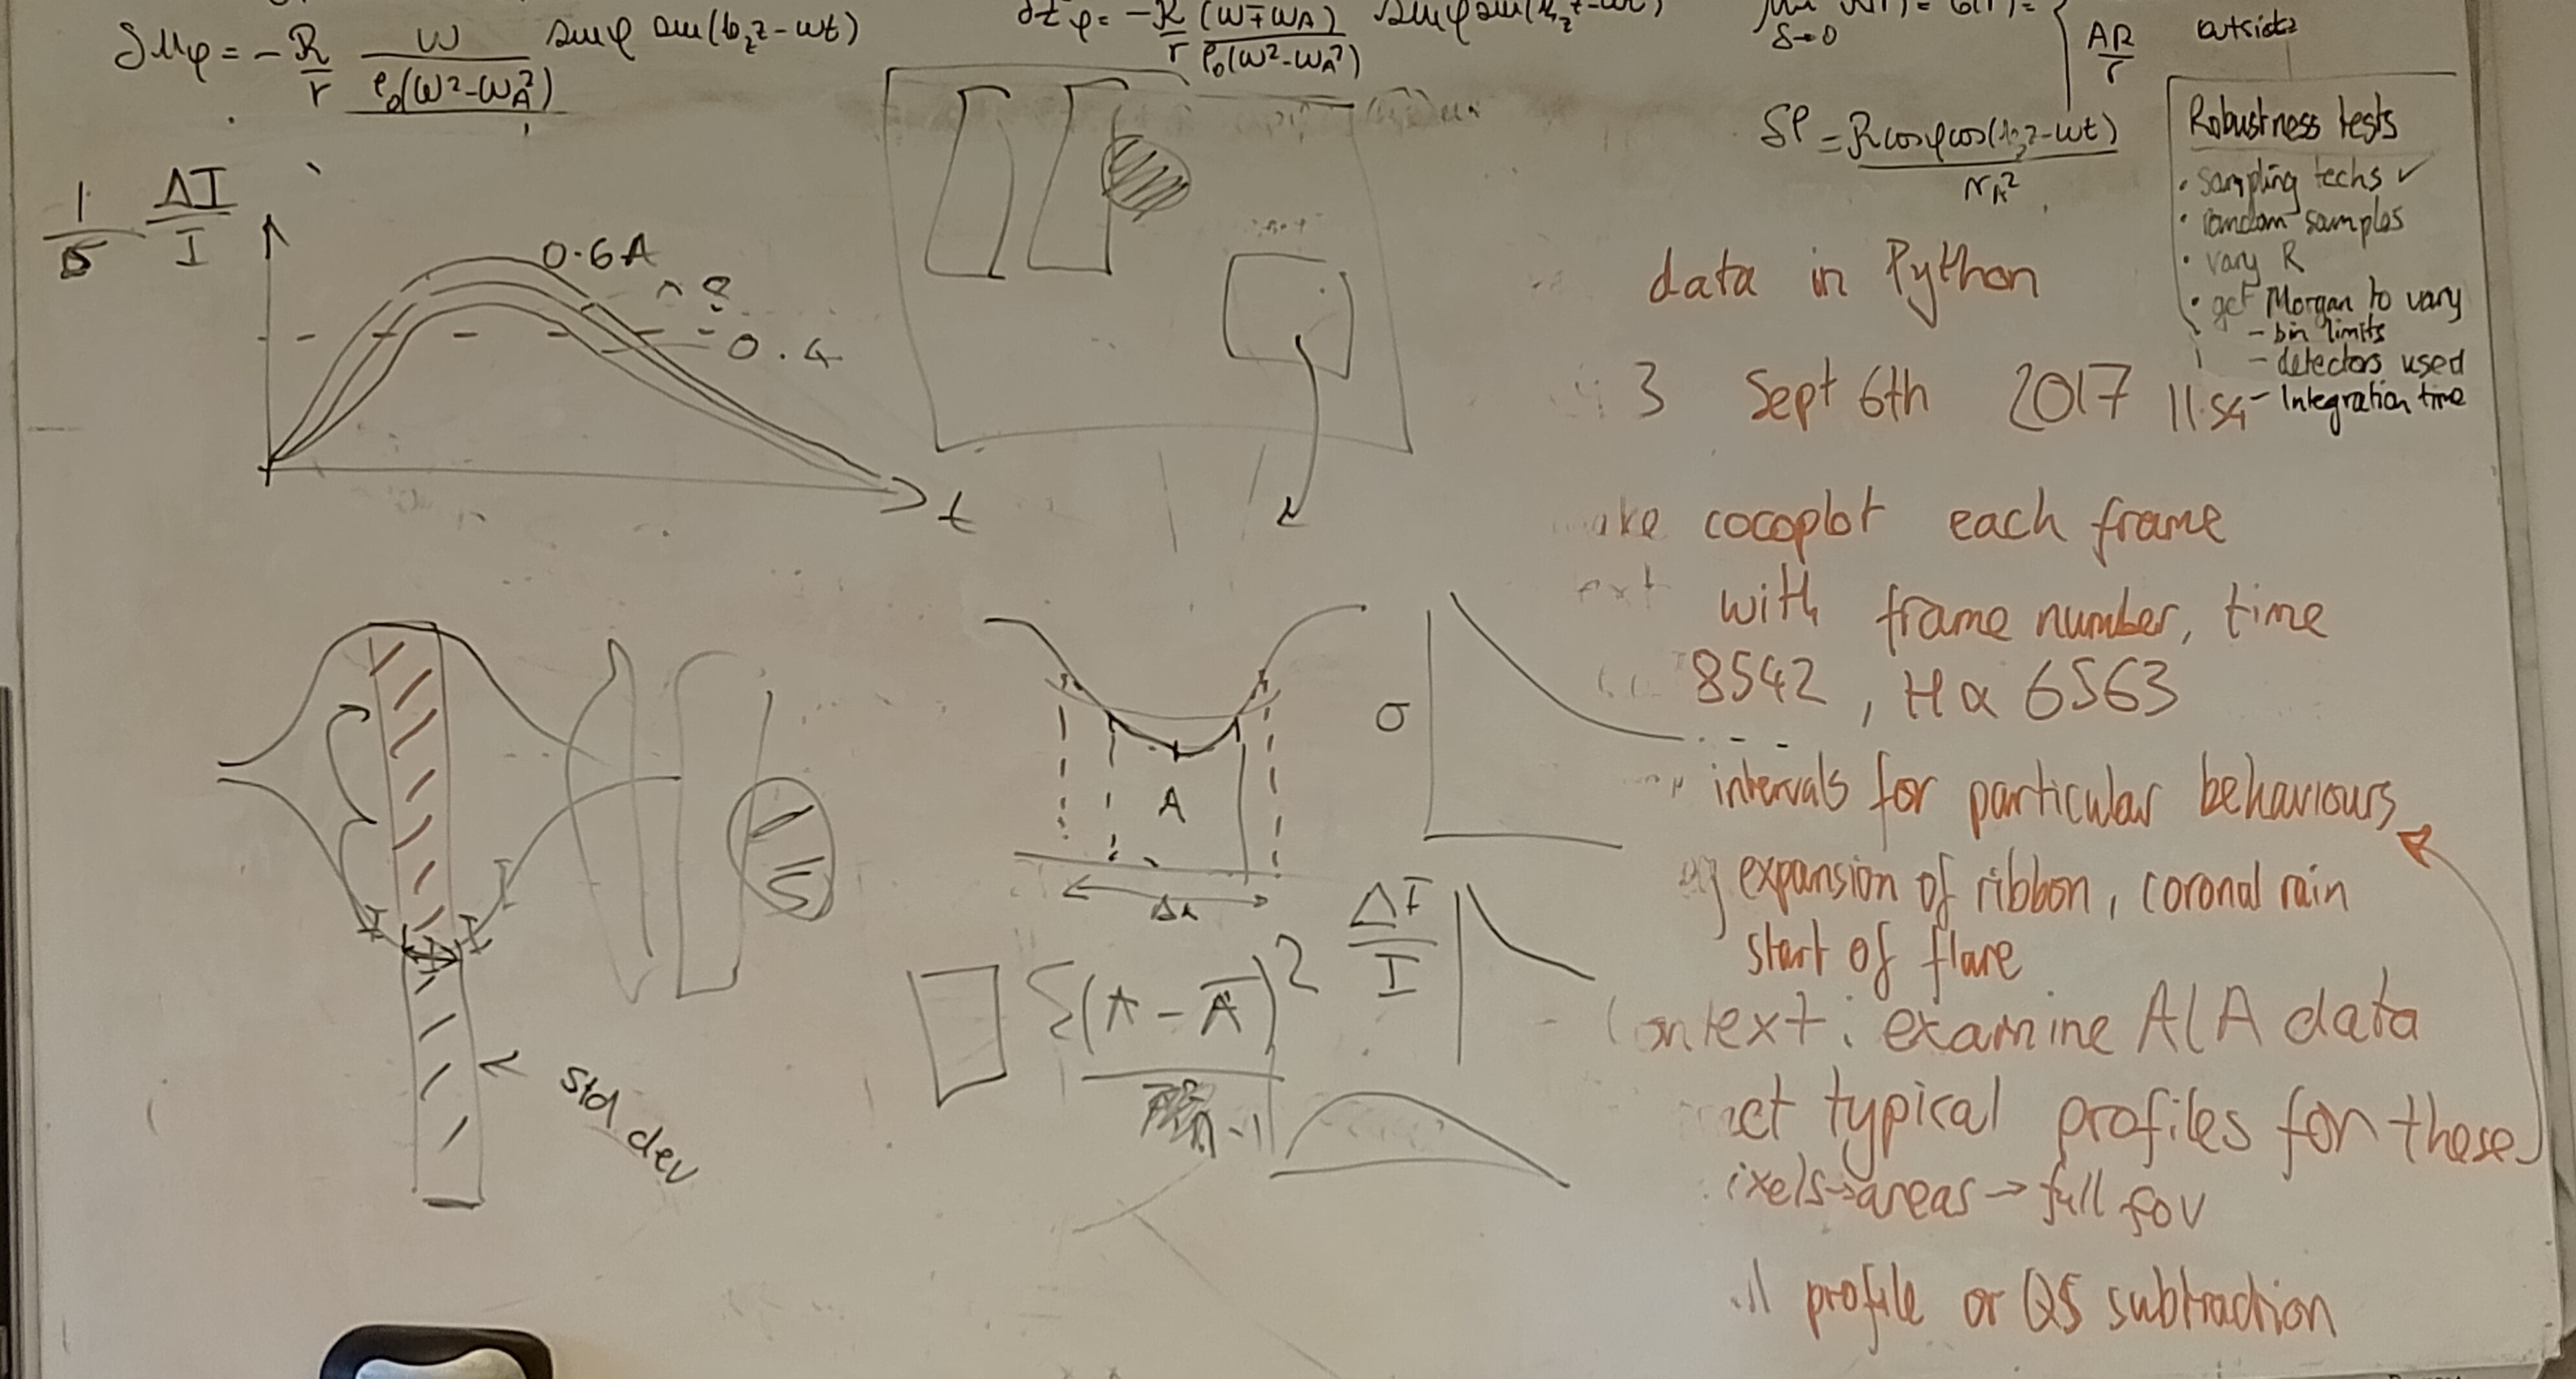 δuφ = - R/r ω/ρ₀(ω²-ωA²) sinφ sin(k_z z - ωt)
= - R/r (ω∓ωA)/ρ₀(ω²-ωA²)
δ→0
AR/r
outside
δP = R cosφ cos(k_z z - ωt)/vA²
Robustness tests
• sampling techs ✓
• random samples
• vary R
• get Morgan to vary
- bin limits
- detectors used
- Integration time
1/σ ΔI/I
0.6A
^ ?
0.4
t
data in Python
3 Sept 6th 2017 11.54
cocoplot each frame
with frame number, time
8542, Hα 6563
intervals for particular behaviours
eg expansion of ribbon, coronal rain
start of flare
Context: examine AIA data
typical profiles for these
→ areas → full FOV
profile or QS subtraction
A
Δλ
σ
ΔI/I
Σ(A - Ā)²
n-1
std dev